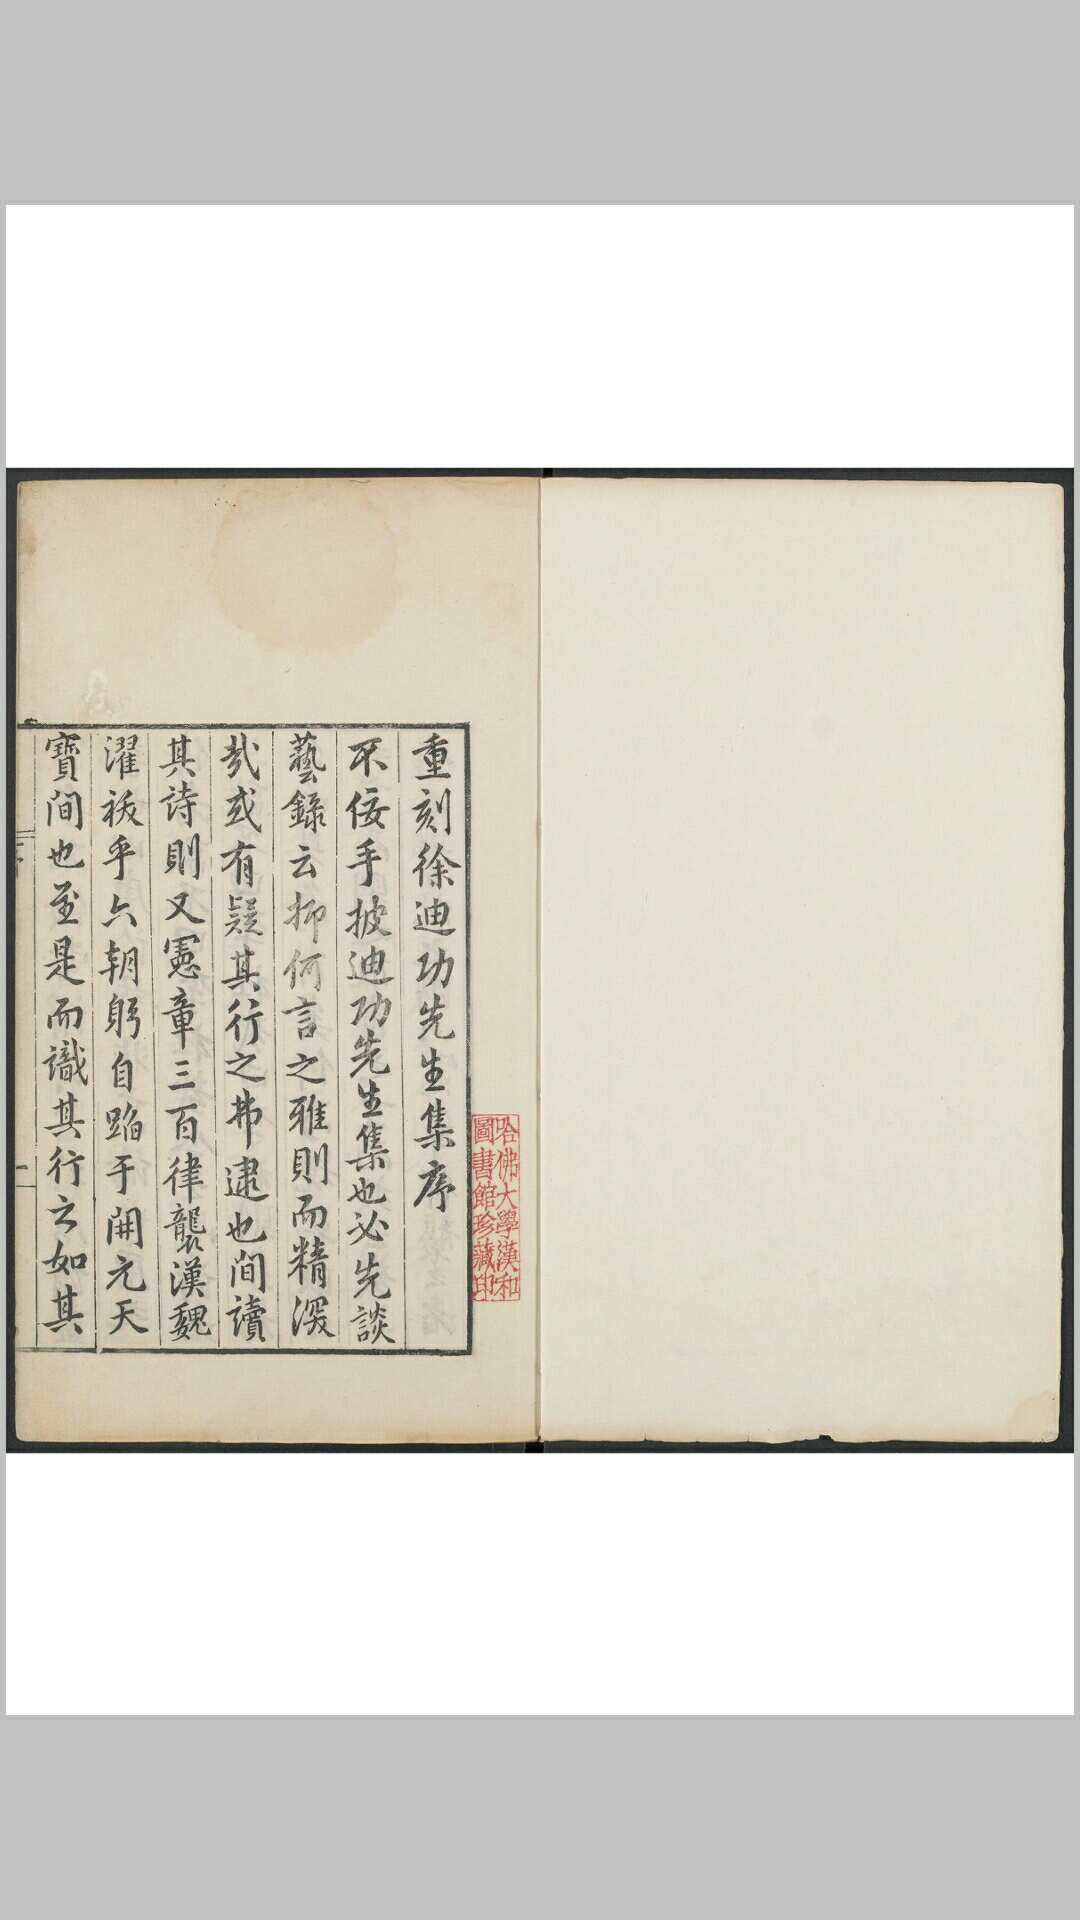 重刻徐迪功先生集序
不佞手披迪功先生集也必先談
藝錄云抑何言之雅則而精深
哉或有疑其行之弗逮也間讀
其詩則又憲章三百律襲漢魏
濯祓乎六朝躬自蹈于開元天
寶間也至是而識其行之如其
哈佛大學漢和
圖書館珍藏印
序
一